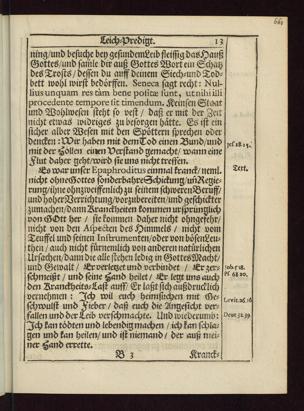 Leich-Predigt. 13
ning/ und besuche bey gesundem Leib fleissig das Hauß
Gottes/ und samle dir auß Gottes Wort ein Schatz
des Trosts/ dessen du auff deinem Siech- und Tod-
bett wohl wirst bedörffen. Seneca sagt recht: Nul-
lius unquam res tàm bene positæ sunt, ut nihil illi
procedente tempore sit timendum. Keinsen Staat
und Wohlwesen steht so vest/ daß er mit der Zeit
nicht etwas widriges zu besorgen hätte. Es ist ein
sicher alber Wesen mit den Spöttern sprechen oder
dencken: Wir haben mit dem Tod einen Bund/ und
mit der Höllen einen Verstand gemacht/ wann eine
Flut daher geht/ wird sie uns nicht treffen.
Jes. 28. 15.
Es war unser Epaphroditus einmal kranck/ neml.
Text.
nicht ohne Gottes sonderbahre Schickung uñ Regie-
rung/ ihne ohnzweiffenlich zu seinem schweren Beruff/
und hoher Verrichtung/ vorzubereiten/ und geschickter
zumachen/ dann Kranckheiten kommen ursprünglich
von Gott her/ sie kommen daher nicht ohngefehr/
nicht von den Aspecten des Himmels/ nicht vom
Teuffel und seinen Instrumenten/ oder von bösen Leu-
then/ auch nicht fürnemlich von anderen natürlichen
Ursachen/ dann die alle stehen ledig in Gottes Macht/
und Gewalt/ Er verletzet und verbindet/ Er zer-
schmeißt/ und seine Hand heilet/ Er legt uns auch
Job 5. 18.
Ps. 68. 20.
den Kranckheits-Last auff. Er laßt sich außdrucklich
vernehmen: Ich wil euch heimsuchen mit Ge-
schwulst und Fieber/ daß euch die Angesicht ver-
Levit. 26. 16.
fallen und der Leib verschmachte. Und wiederumb:
Ich kan tödten und lebendig machen/ ich kan schla-
Deut. 32. 39.
gen und kan heilen/ und ist niemand/ der auß mei-
ner Hand errette.
B 3 Kranck-